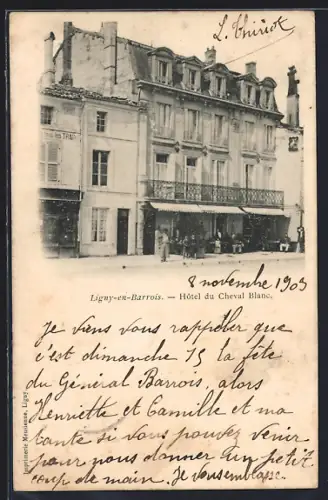 L. Thiriot
Ligny-en-Barrois. — Hôtel du Cheval Blanc.
8 novembre 1903
Je viens vous rappeler que
c'est dimanche 15 la fête
du Général Barrois, alors
Henriette et Camille et ma
tante si vous pouvez venir
pour nous donner un petit
coup de main. Je vous embrasse.
Imprimerie Meusienne, Ligny